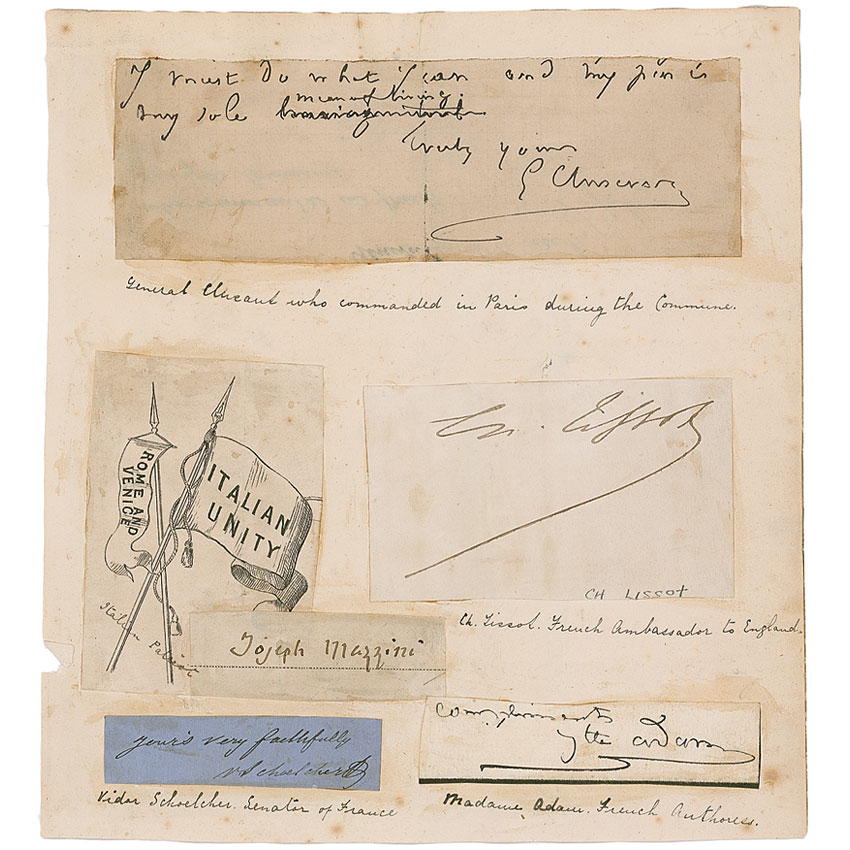 I must do what I can and my pen is
my sole means of living.
Truly yours
G Cluseret
General Clusaut who commanded in Paris during the Commune.
ROME AND
VENICE
ITALIAN
UNITY
Italian Patriot
Joseph Mazzini
Ch. Tissot
CH LISSOT
Ch. Tissot. French Ambassador to England.
yours very faithfully
V Schoelcher
Victor Schoelcher. Senator of France
Compliments
Jtte Adam
Madame Adam. French Authoress.